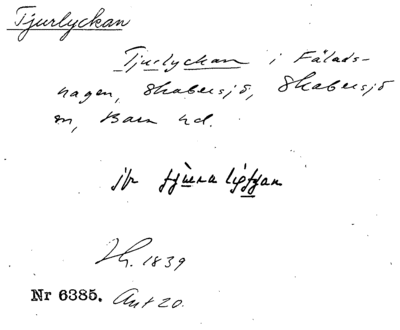 Tjurlyckan
Tjurlyckan i Fålads-
hagen, Skabersjö, Skabersjö
sn, Bara hd.
jfr
1839
Nr 6385. Ant 20.